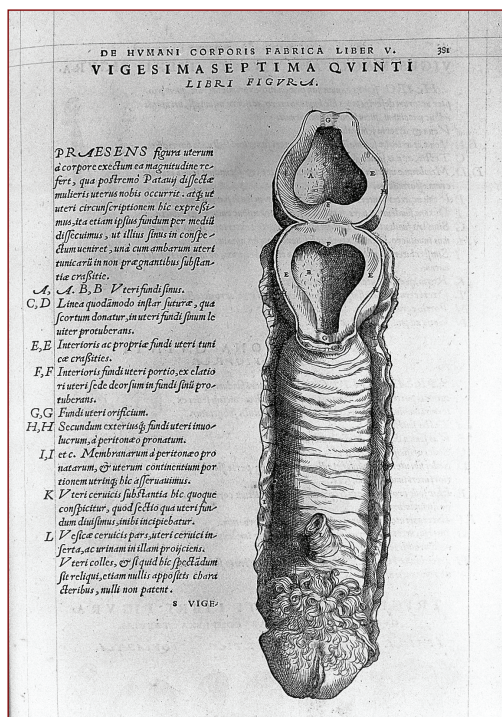 DE HVMANI CORPORIS FABRICA LIBER V. 381
VIGESIMASEPTIMA QVINTI
LIBRI FIGVRA.
PRAESENS figura uterum
à corpore exectum ea magnitudine re-
fert, qua postremò Patauij dissectæ
mulieris uterus nobis occurrit. atq; ut
uteri circunscriptionem hic expressi-
mus, ita etiam ipsius fundum per mediũ
dissecuimus, ut illius sinus in conspe-
ctum ueniret, unà cum ambarum uteri
tunicarũ in non prægnantibus substan-
tiæ crassitie.
A, A. B, B Vteri fundi sinus.
C, D Linea quodãmodo instar suturæ, qua
scortum donatur, in uteri fundi sinum le
uiter protuberans.
E, E Interioris ac propriæ fundi uteri tuni
cæ crassities.
F, F Interioris fundi uteri portio, ex elatio
ri uteri sede deorsum in fundi sinũ pro-
tuberans.
G, G Fundi uteri orificium.
H, H Secundum exteriusq; fundi uteri inuo-
lucrum, à peritonæo pronatum.
I, I et c. Membranarum à peritonæo pro
natarum, & uterum continentium por
tionem utrinq; hic asseruauimus.
K Vteri ceruicis substantia hic quoque
conspicitur, quod sectio qua uteri fun-
dum diuisimus, inibi incipiebatur.
L Vesicæ ceruicis pars, uteri ceruici in-
serta, ac urinam in illam proijciens.
Vteri colles, & si quid hic spectãdum
sit reliqui, etiam nullis appositis chara
cteribus, nulli non patent.
S VIGE-
G
A
E
F
E
B
E
G